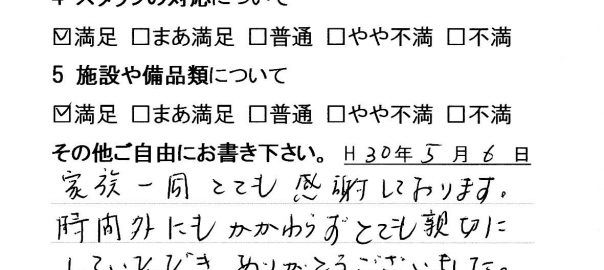 4 スタッフの対応について
☑満足 □まあ満足 □普通 □やや不満 □不満
5 施設や備品類について
☑満足 □まあ満足 □普通 □やや不満 □不満
その他ご自由にお書き下さい。 H30年5月6日
家族一同とても感謝しております。
時間外にもかかわらずとても親切に
していただき ありがとうございました。